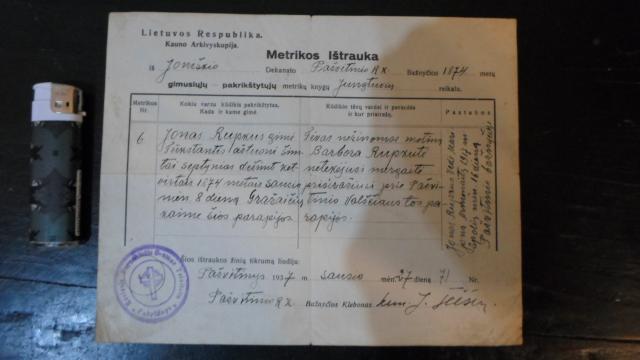 Lietuvos Respublika.
Kauno Arkivyskupija.
Metrikos Ištrauka
iš Joniškio Dekanato Pašvitinio R.K. Bažnyčios 1874 metų
gimusiųjų — pakrikštytųjų metrikų knygų Jungtuvių reikalu.
Metrikos Nr.
Kokiu vardu kūdikis pakrikštytas. Kada ir kame gimė.
Kūdikio tėvų vardai ir pavardės ir kur prirašyti.
Pastabos
6
Jonas Rupkus gimė
tūkstantis aštuoni šim
tai septynias dešimt ket
virtais 1874 metais sausio
mėn. 8 dieną
kaime šios parapijos
Tėvas nežinomas motina
Barbora Rupkutė
netekėjusi mergaitė
prisirašiusi prie Pašvi-
tinio Valsčiaus tos pa
rapijos.
Jonas Rupkus
Pašvitinio
Šios ištraukos žinių tikrumą liudiju:
Pašvitinys 1937 m. sausio mėn. 27 dieną 71 Nr.
Pašvitinio R.K. Bažnyčios Klebonas kun. J.